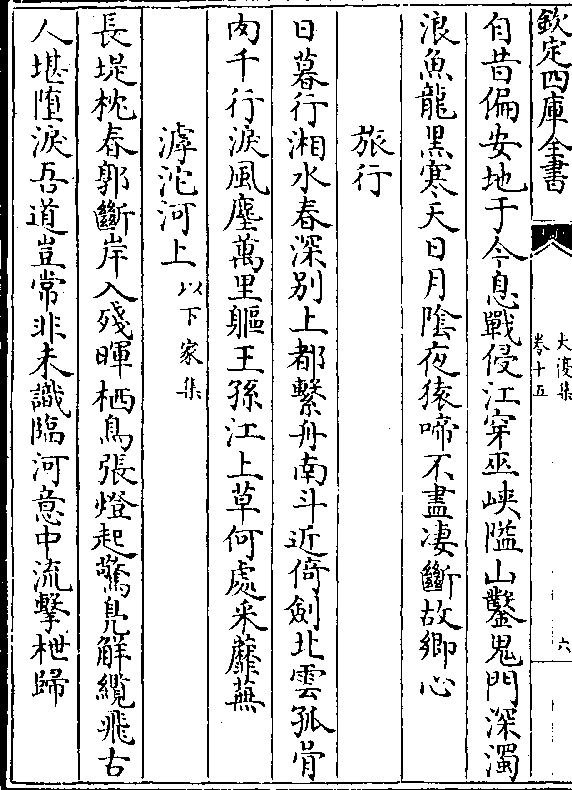 欽定四庫全書
大復集
卷十五
六
自昔偏安地于今息戰侵江穿巫峽隘山鑿鬼門深濁
浪魚龍黑寒天日月隂夜猿啼不盡凄斷故鄉心
旅行
日暮行湘水春深别上都繫舟南斗近倚劍北雲孤骨
肉千行淚風塵萬里軀王孫江上草何處采蘼蕪
滹沱河上以下家集
長堤枕春郭斷岸入殘暉栖鳥張燈起驚鳬解纜飛古
人堪墮淚吾道豈常非未識臨河意中流擊枻歸